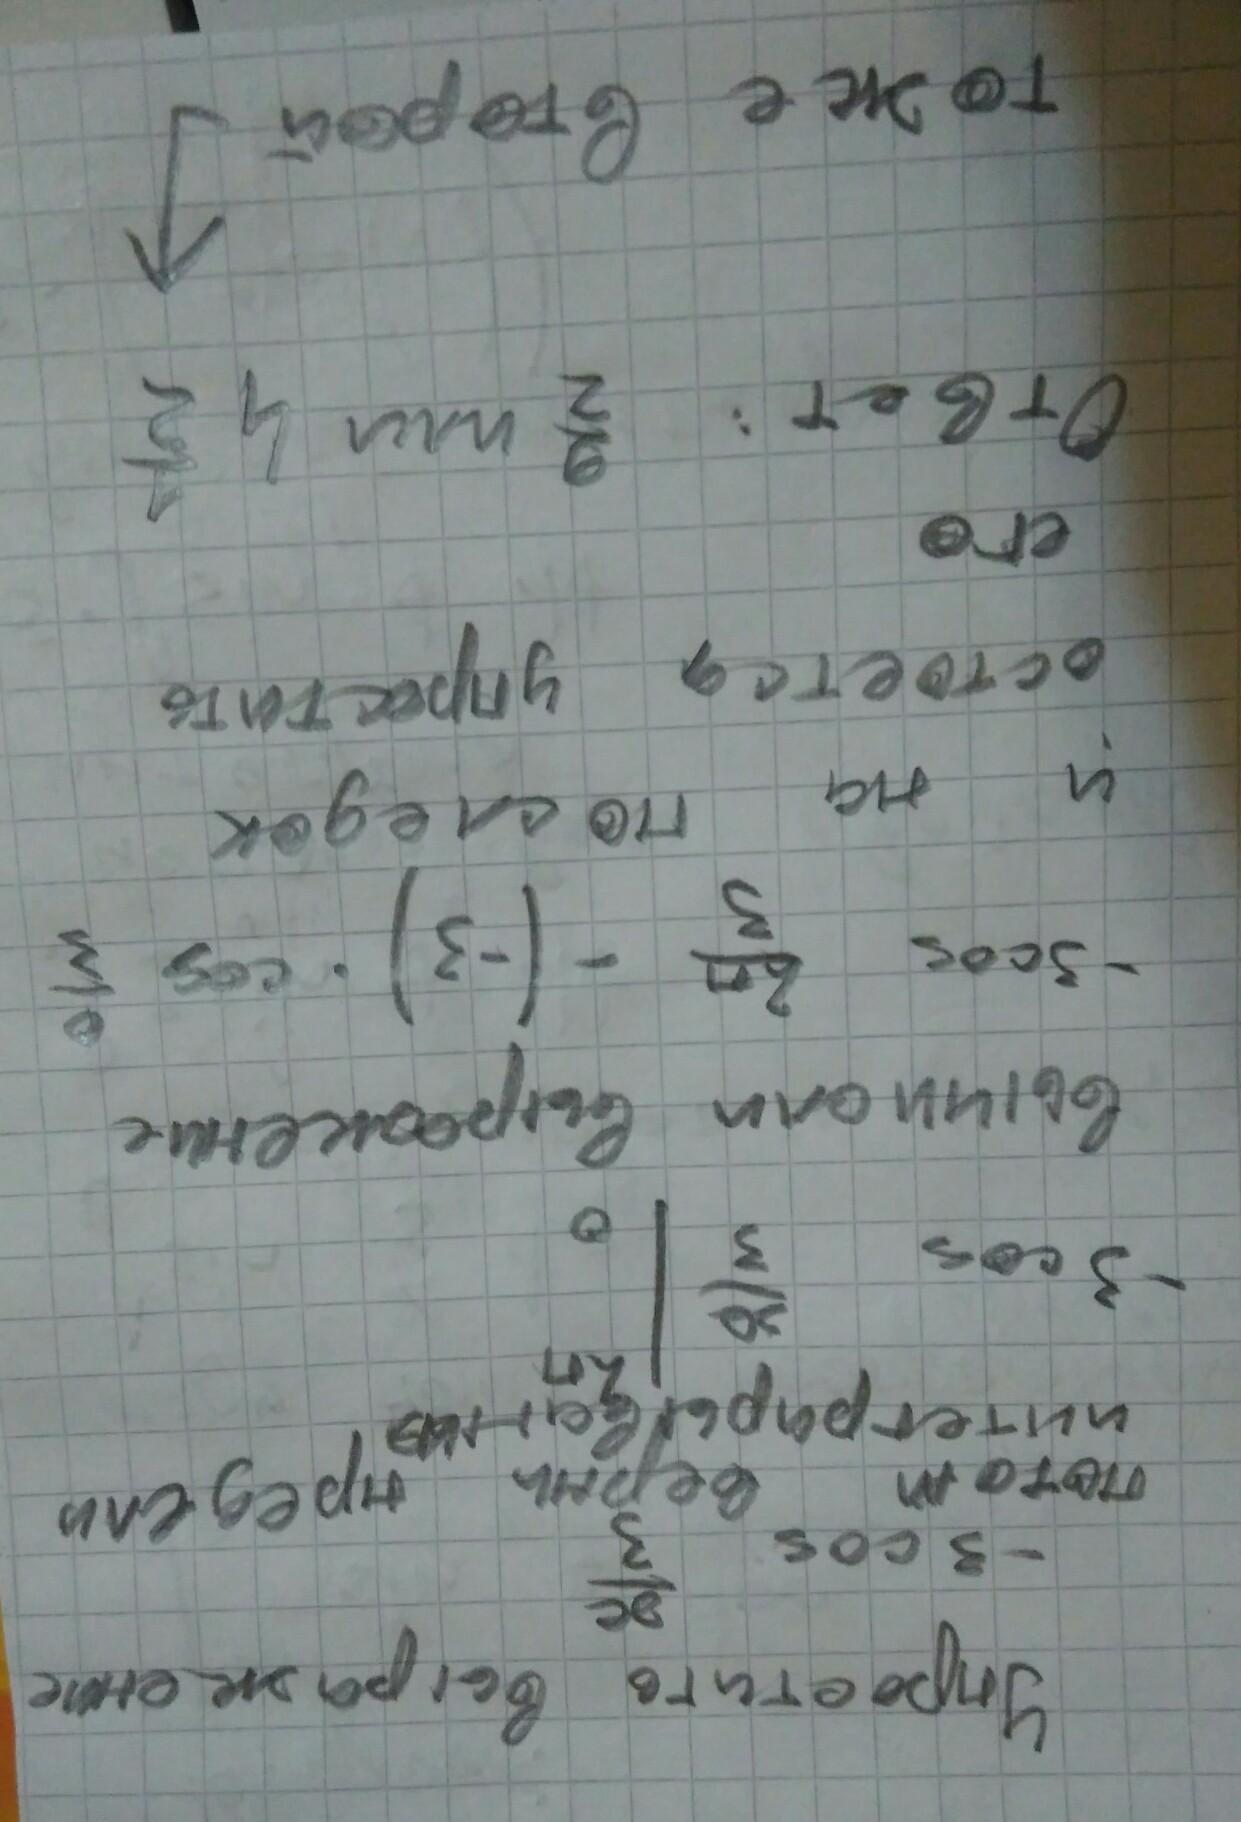 Упростить выражение
-3 cos x/3
потом верни пределы
интегрирования
-3 cos x/3 | 2п 0
вычисли выражение
-3cos 2п/3 - (-3) · cos 0/3
и на последок
остоется упростить
его
Ответ: 9/2 или 4 1/2
тоже второй